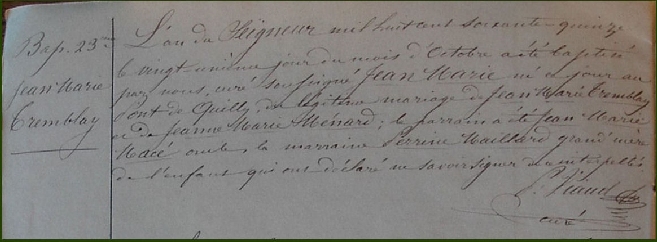 Bap. 23me
Jean Marie
Tremblay
L'an du Seigneur mil huit cent soixante-quinze
le vingt-unième jour du mois d'Octobre a été baptisé
par nous, curé soussigné Jean Marie né ce jour au
Pont de Quilly, du légitime mariage de Jean Marie Tremblay
et de Jeanne Marie Ménard; le parrain a été Jean Marie
Macé oncle, la marraine Perrine Maillard grand'mère
de l'enfant qui ont déclaré ne savoir signer
curé